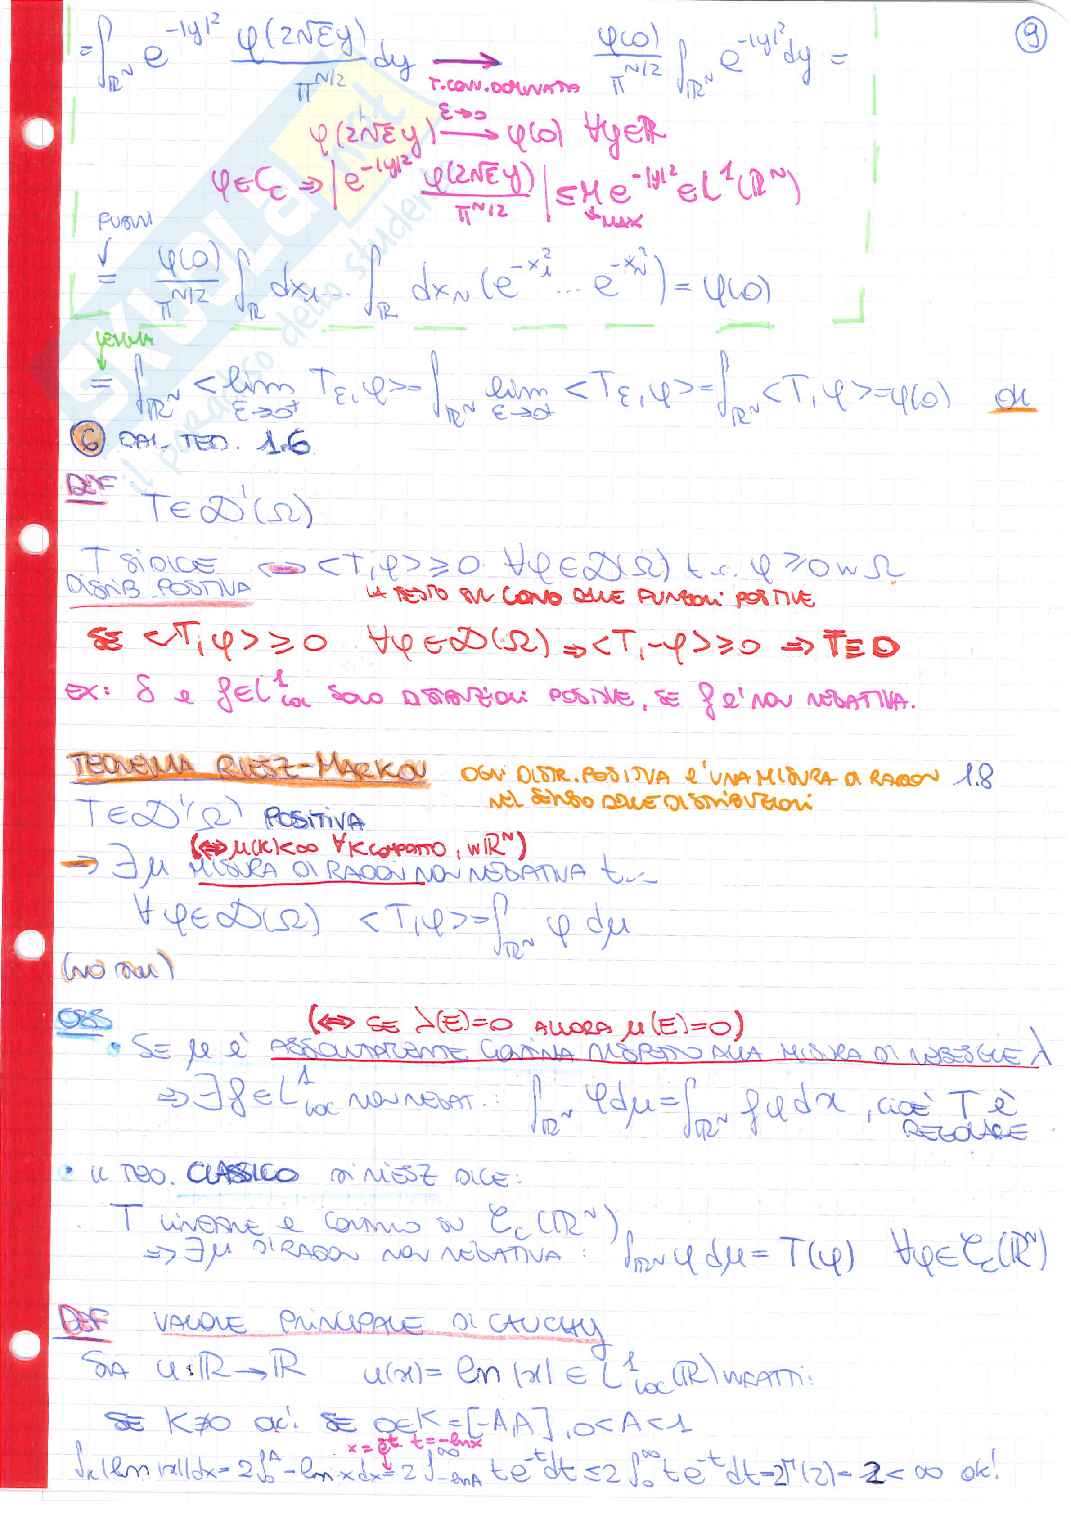 9
= ∫_{ℝ^N} e^{-|y|²} φ(2√ε y)/π^{N/2} dy ⟶ φ(0)/π^{N/2} ∫_{ℝ^N} e^{-|y|²} dy =
T. CONV. DOMINATA
φ(2√ε y) ⟶^{ε→0} φ(0) ∀y∈ℝ
φ∈C_c ⇒ |e^{-|y|²} φ(2√ε y)/π^{N/2}| ≤ M e^{-|y|²} ∈ L¹(ℝ^N)
MAX
FUBINI
= φ(0)/π^{N/2} ∫_ℝ dx₁ ... ∫_ℝ dx_N (e^{-x₁²} ... e^{-x_N²}) = φ(0)
= ∫_{ℝ^N} <lim_{ε→0⁺} T_ε, φ> = ∫_{ℝ^N} lim_{ε→0⁺} <T_ε, φ> = ∫_{ℝ^N} <T, φ> = φ(0) ok
6 DAL TEO. 1.6
DEF T∈𝒟'(Ω)
T SI DICE ⇔ <T,φ> ≥ 0 ∀φ∈𝒟(Ω) t.c. φ ≥ 0 in Ω
DISTRIB. POSITIVA LA TESTO SUL CONO DELLE FUNZIONI POSITIVE
SE <T,φ> ≥ 0 ∀φ∈𝒟(Ω) ⇒ <T,-φ> ≥ 0 ⇒ T≡0
EX: δ e f∈L¹_loc SONO DISTRIBUZIONI POSITIVE, SE f è NON NEGATIVA.
TEOREMA RIESZ-MARKOV OGNI DISTR. POSITIVA è UNA MISURA DI RADON 1.8
NEL SENSO DELLE DISTRIBUZIONI
T∈𝒟'(Ω) POSITIVA
(⇔ μ(K)<∞ ∀K COMPATTO, in ℝ^N)
⇒ ∃μ MISURA DI RADON NON NEGATIVA t.c.
∀φ∈𝒟(Ω) <T,φ> = ∫_{ℝ^N} φ dμ
(NO DIM)
OSS (⇔ SE λ(E)=0 ALLORA μ(E)=0)
• SE μ è ASSOLUTAMENTE CONTINUA RISPETTO ALLA MISURA DI LEBESGUE λ
⇒ ∃f∈L¹_loc NON NEGAT.: ∫_{ℝ^N} φdμ = ∫_{ℝ^N} fφdx, cioè T è
REGOLARE
• IL TEO. CLASSICO DI RIESZ DICE:
T LINEARE E CONTINUO SU C_c(ℝ^N)
⇒ ∃μ DI RADON NON NEGATIVA: ∫_{ℝ^N} φdμ = T(φ) ∀φ∈C_c(ℝ^N)
DEF VALORE PRINCIPALE DI CAUCHY
SIA u: ℝ→ℝ u(x) = ln|x| ∈ L¹_loc(ℝ) INFATTI:
SE K∌0 ok! SE 0∈K=[-A,A], 0<A<1
x=e^{-t} t=-lnx
∫_K |ln|x||dx = 2∫_0^A -ln x dx = 2∫_{-lnA}^∞ te^{-t}dt ≤ 2∫_0^∞ te^{-t}dt = 2Γ(2) = 2 < ∞ ok!
SKUOLA.net
il paradiso dello studente